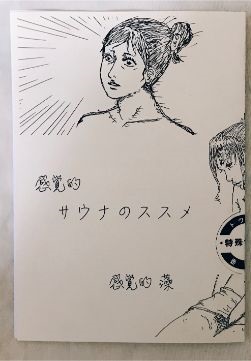 感覚的
サウナのススメ
特殊
感覚的 藻